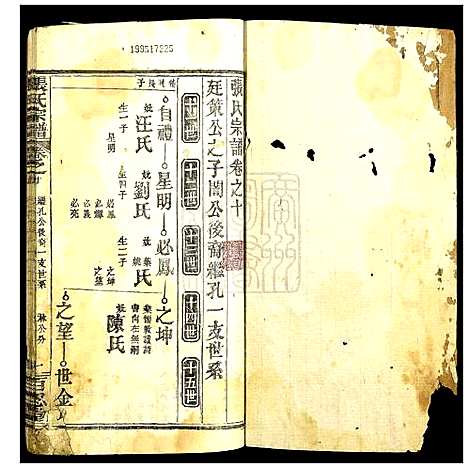 199517225
張氏宗譜卷之十
廷策公之子閏公後裔繼孔一支世系
十一世
十二世
十三世
十四世
十五世
自禮
星明
必鳳
之坤
妣汪氏
生一子
星明
妣劉氏
生四子
必鳳
必亮
氏
生二子
之坤
之望
妣陳氏
之望
世金
張氏宗譜
卷之十
繼孔公後裔一支世系
百忍堂